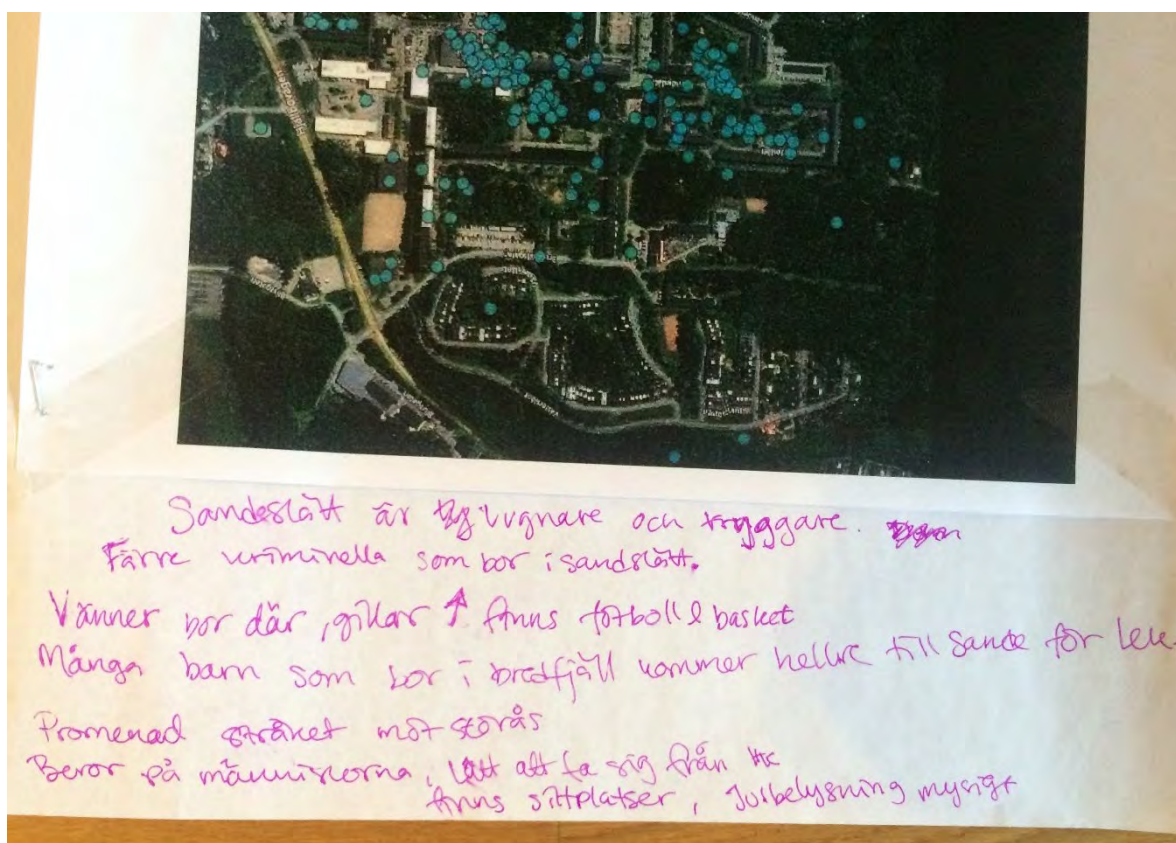 Hjällbovägen
Sandeslätt är lugnare och tryggare.
Färre kriminella som bor i sandslätt.
Vänner bor där, gillar ↑ finns fotboll & basket
Många barn som bor i bredfjäll kommer hellre till Sande för lek
Promenad stråket mot storås
Beror på människorna, lätt att ta sig från
finns sittplatser, Julbelysning mysigt